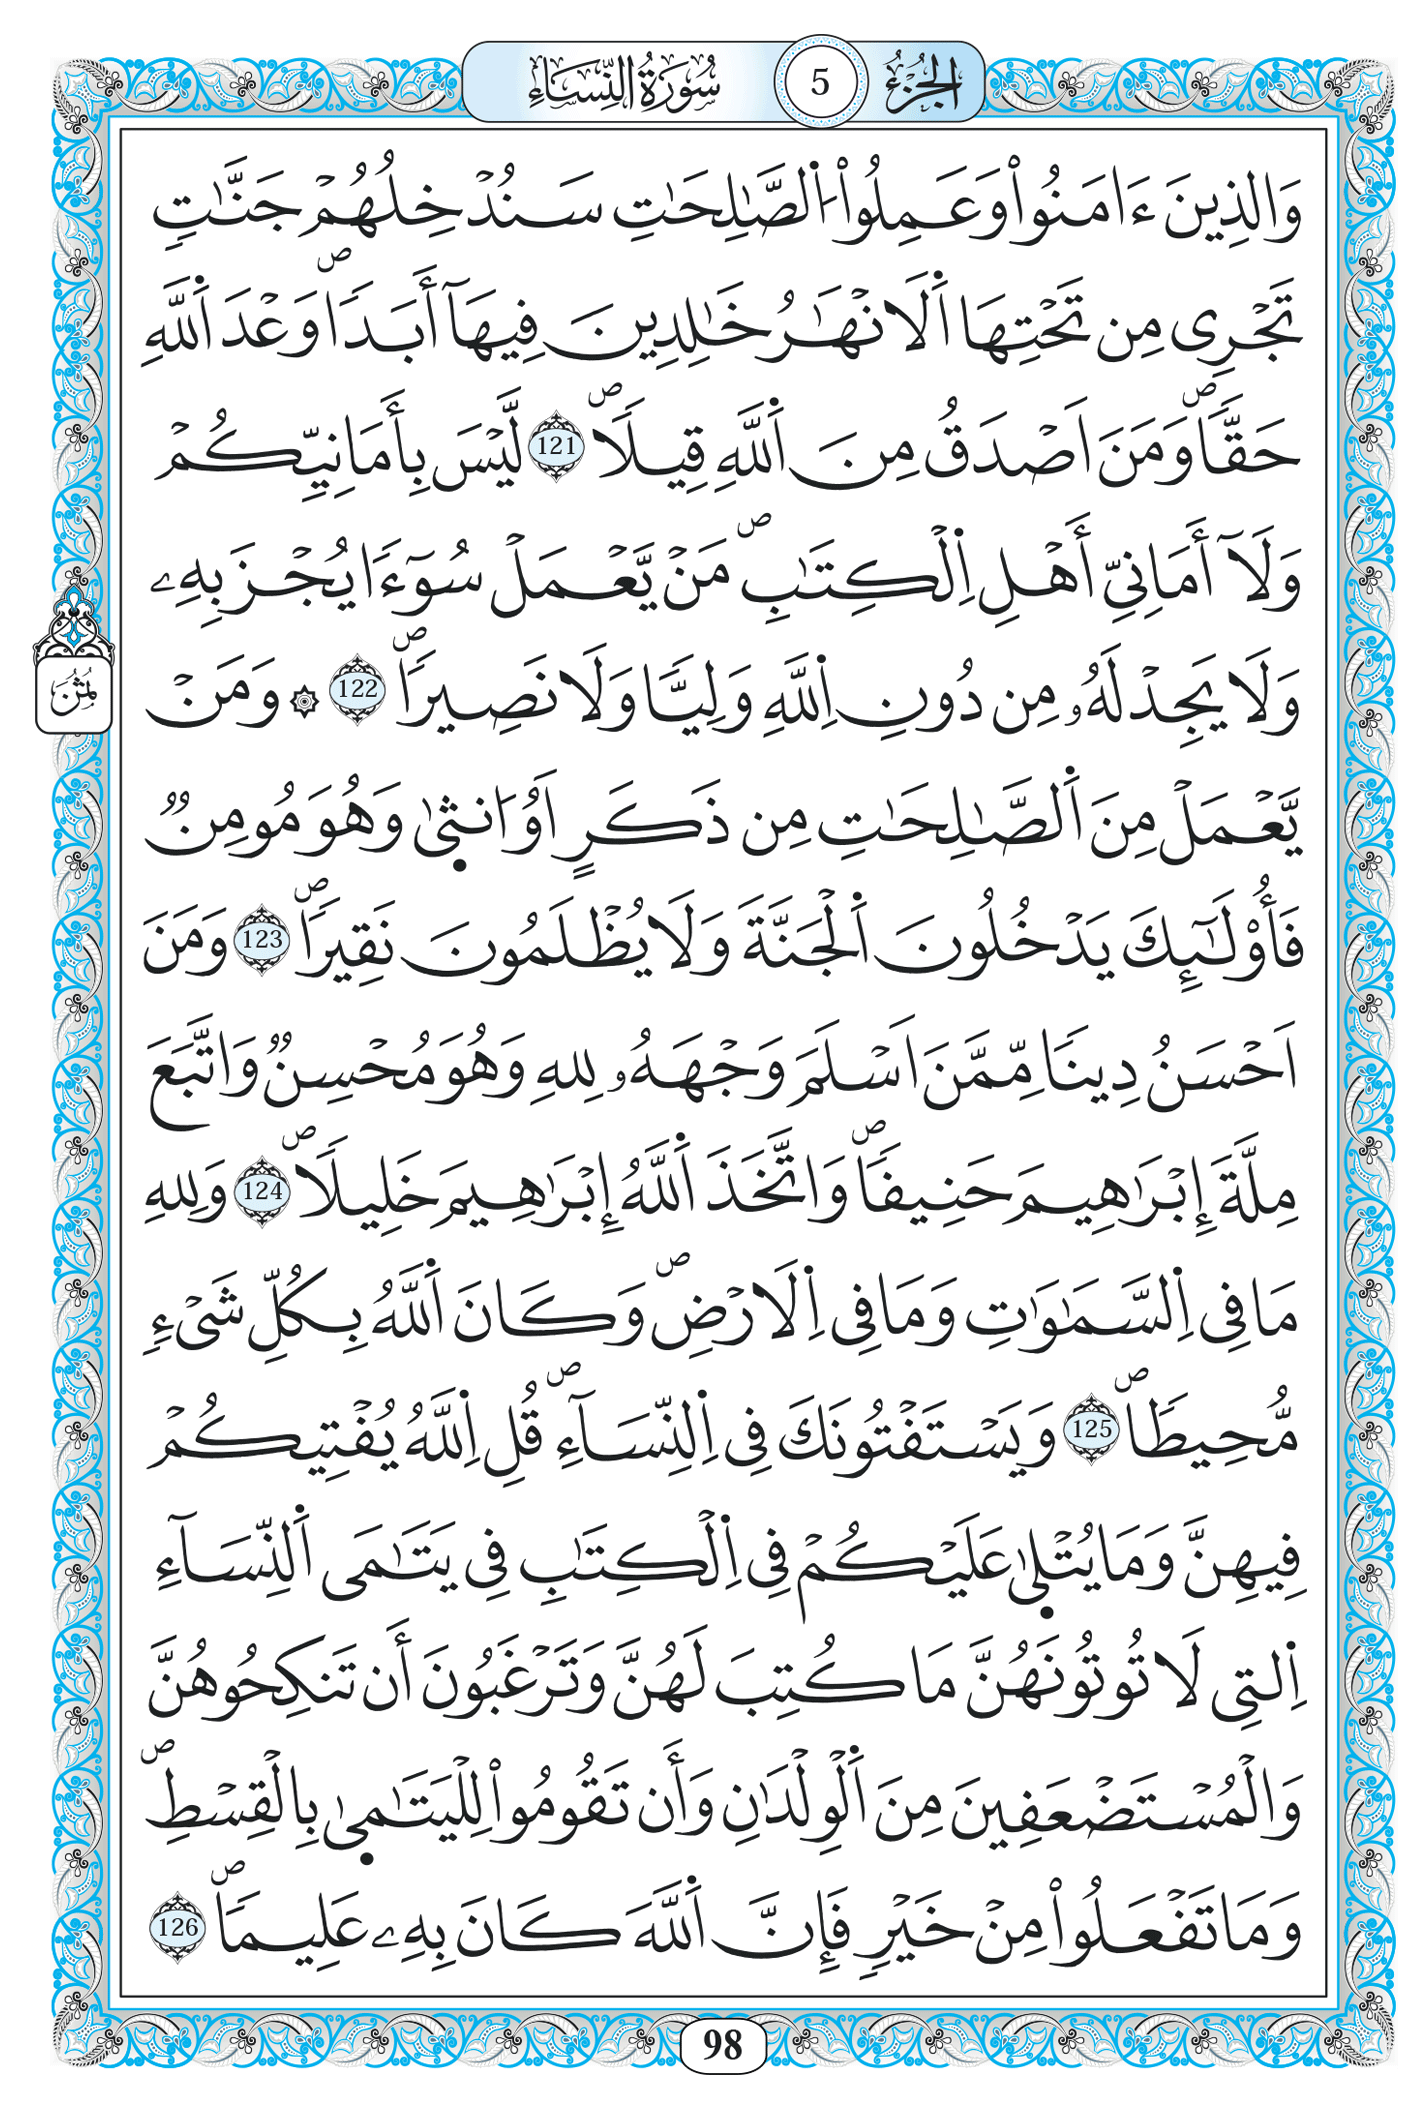 الجزء 5 سورة النساء
وَالذِينَ ءَامَنُواْ وَعَمِلُواْ اُلصَّٰلِحَٰتِ سَنُدْخِلُهُمْ جَنَّٰتٖ
تَجْرِے مِن تَحْتِهَا اَ۬لَانْهَٰرُ خَٰلِدِينَ فِيهَآ أَبَداٗ وَعْدَ اَ۬للَّهِ
حَقّاٗ وَمَنَ اَصْدَقُ مِنَ اَ۬للَّهِ قِيلاٗ 121 لَّيْسَ بِأَمَانِيِّكُمْ
وَلَآ أَمَانِيِّ أَهْلِ اِ۬لْكِتَٰبِ مَنْ يَّعْمَلْ سُوٓءاٗ يُجْزَ بِهِۦ
وَلَا يَجِدْ لَهُۥ مِن دُونِ اِ۬للَّهِ وَلِيّاٗ وَلَا نَصِيراٗ 122 ۞ وَمَنْ
ثُمُن
يَّعْمَلْ مِنَ اَ۬لصَّٰلِحَٰتِ مِن ذَكَرٍ اَوُ ا۟نث۪يٰ وَهُوَ مُومِنٞ
فَأُوْلَٰٓئِكَ يَدْخُلُونَ اَ۬لْجَنَّةَ وَلَا يُظْلَمُونَ نَقِيراٗ 123 وَمَنَ
اَحْسَنُ دِيناٗ مِّمَّنَ اَسْلَمَ وَجْهَهُۥ لِلهِ وَهُوَ مُحْسِنٞ وَاتَّبَعَ
مِلَّةَ إِبْرَٰهِيمَ حَنِيفاٗ وَاتَّخَذَ اَ۬للَّهُ إِبْرَٰهِيمَ خَلِيلاٗ 124 وَلِلهِ
مَا فِي اِ۬لسَّمَٰوَٰتِ وَمَا فِي اِ۬لَارْضِ وَكَانَ اَ۬للَّهُ بِكُلِّ شَيْءٖ
مُّحِيطاٗ 125 وَيَسْتَفْتُونَكَ فِي اِ۬لنِّسَآءِ قُلِ اِ۬للَّهُ يُفْتِيكُمْ
فِيهِنَّ وَمَا يُتْل۪يٰ عَلَيْكُمْ فِي اِ۬لْكِتَٰبِ فِي يَتَٰمَي اَ۬لنِّسَآءِ
اِ۬لتِي لَا تُوتُونَهُنَّ مَا كُتِبَ لَهُنَّ وَتَرْغَبُونَ أَن تَنكِحُوهُنَّ
وَالْمُسْتَضْعَفِينَ مِنَ اَ۬لْوِلْدَٰنِ وَأَن تَقُومُواْ لِلْيَتَٰم۪يٰ بِالْقِسْطِ
وَمَا تَفْعَلُواْ مِنْ خَيْرٖ فَإِنَّ اَ۬للَّهَ كَانَ بِهِۦ عَلِيماٗ 126
98